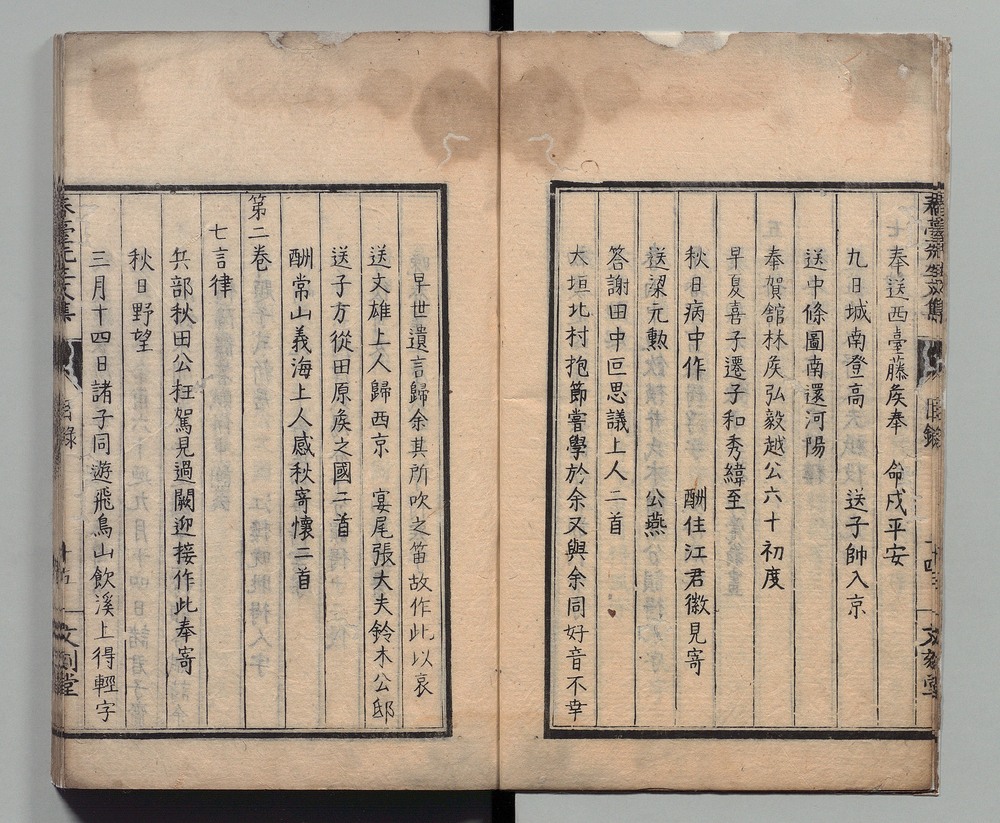 奉送西臺藤矦奉　命戍平安
九日城南登高　送子帥入京
送中條圖南還河陽
奉賀館林矦弘毅越公六十初度
早夏喜子遷子和秀緯至
秋日病中作　酬住江君徽見寄
送梁元勲　公燕
答謝田中叵思議上人二首
大垣北村抱節嘗學於余又與余同好音不幸
早世遺言歸余其所吹之笛故作此以哀
送文雄上人歸西京　宴尾張大夫鈴木公邸
送子方從田原矦之國二首
酬常山義海上人感秋寄懷二首
第二卷
七言律
兵部秋田公枉駕見過闕迎接作此奉寄
秋日野望
三月十四日諸子同遊飛鳥山飲溪上得輕字
文集
目錄
文刻堂